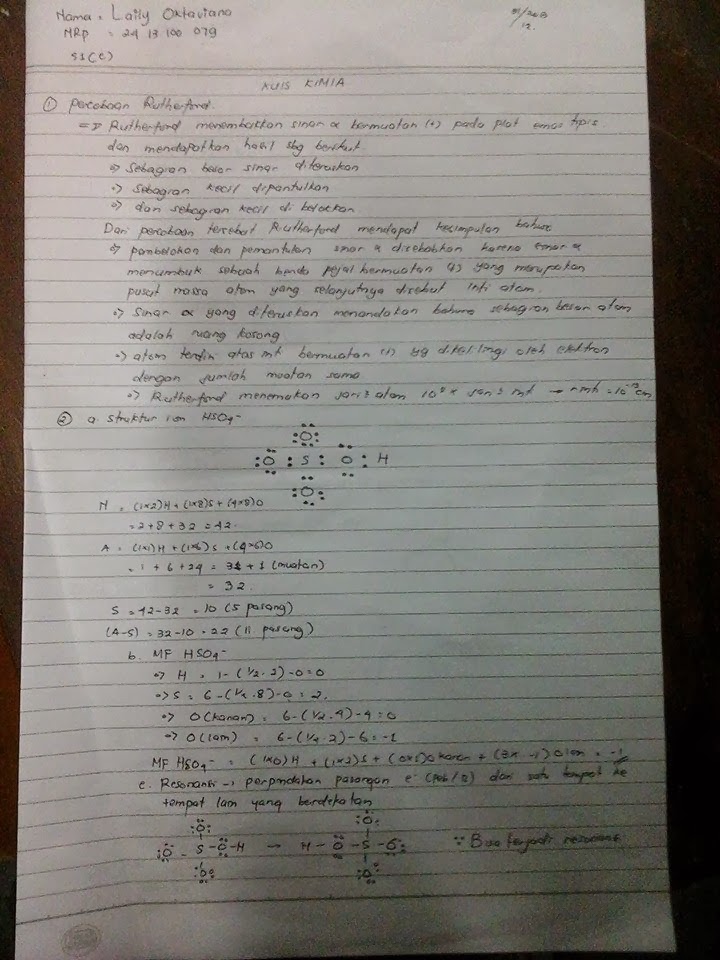 Nama : Laily Oktaviana
NRp : 24 13 100 079
S1 (C)
KUIS KIMIA
① percobaan Rutherford.
=> Rutherford menembakkan sinar α bermuatan (+) pada plat emas tipis
dan mendapatkan hasil sbg berikut
•) Sebagian besar sinar diteruskan
•) Sebagian kecil dipantulkan
•) dan sebagian kecil di belokkan
Dari percobaan tersebut Rutherford mendapat kesimpulan bahwa
•) pembelokan dan pemantulan sinar α disebabkan karena sinar α
menumbuk sebuah benda pejal bermuatan (+) yang merupakan
pusat massa atom yang selanjutnya disebut inti atom.
•) Sinar α yang diteruskan menandakan bahwa sebagian besar atom
adalah ruang kosong
•) atom terdiri atas inti bermuatan (+) yg dikelilingi oleh elektron
dengan jumlah muatan sama
•) Rutherford menemukan jari² atom 10⁵ x jari² inti → r inti = 10⁻¹³ cm
② a. struktur ion HSO₄⁻
O
O S O H
O
N = (1x2)H + (1x8)S + (4x8)O
= 2 + 8 + 32 = 42.
A = (1x1)H + (1x6)S + (4x6)O
= 1 + 6 + 24 = 31 + 1 (muatan)
= 32.
S = 42-32 = 10 (5 pasang)
(A-S) = 32-10 = 22 (11 pasang)
b. MF HSO₄⁻
•> H = 1 - (½.2) - 0 = 0
•> S = 6 - (½.8) - 0 = 2.
•> O (kanan) = 6 - (½.4) - 4 = 0
•> O (lain) = 6 - (½.2) - 6 = -1
MF HSO₄⁻ = (1x0)H + (1x2)S + (0x1)O kanan + (3x -1)O lain = -1
c. Resonansi → perpindahan pasangan e⁻ dari satu tempat ke
tempat lain yang berdekatan
O O
O - S - O - H → H - O - S - O ∵ Bisa terjadi resonansi
O O